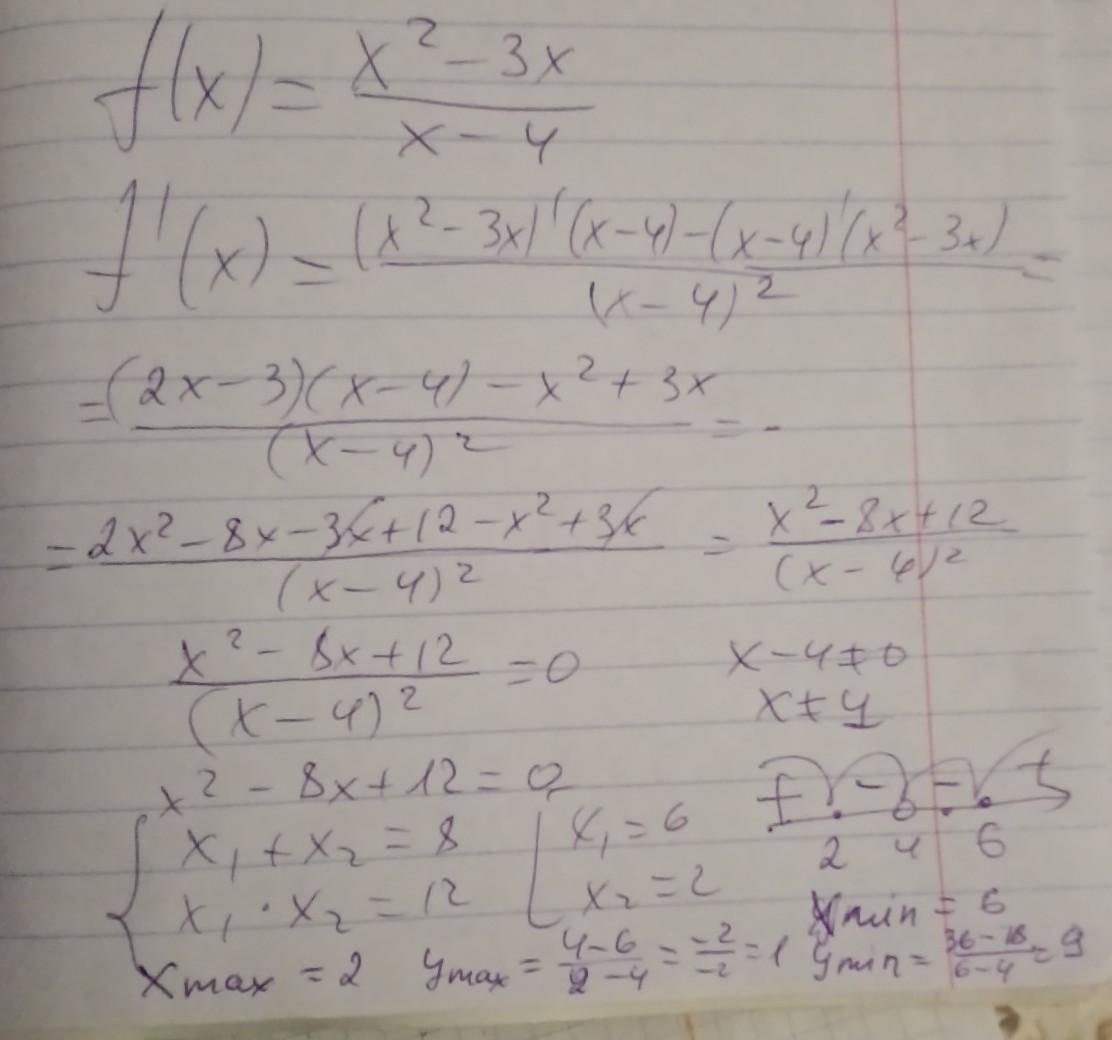 f(x) = (x² - 3x)/(x - 4)
f'(x) = ((x² - 3x)'(x - 4) - (x - 4)'(x² - 3x))/(x - 4)² =
= ((2x - 3)(x - 4) - x² + 3x)/(x - 4)² = -
= (2x² - 8x - 3x + 12 - x² + 3x)/(x - 4)² = (x² - 8x + 12)/(x - 4)²
(x² - 8x + 12)/(x - 4)² = 0 x - 4 ≠ 0
x ≠ 4
x² - 8x + 12 = 0
{ x₁ + x₂ = 8 [ x₁ = 6 + - - +
x₁ · x₂ = 12 x₂ = 2 2 4 6
xmin = 6
xmax = 2 ymax = (4 - 6)/(2 - 4) = -2/-2 = 1 ymin = (36 - 18)/(6 - 4) = 9